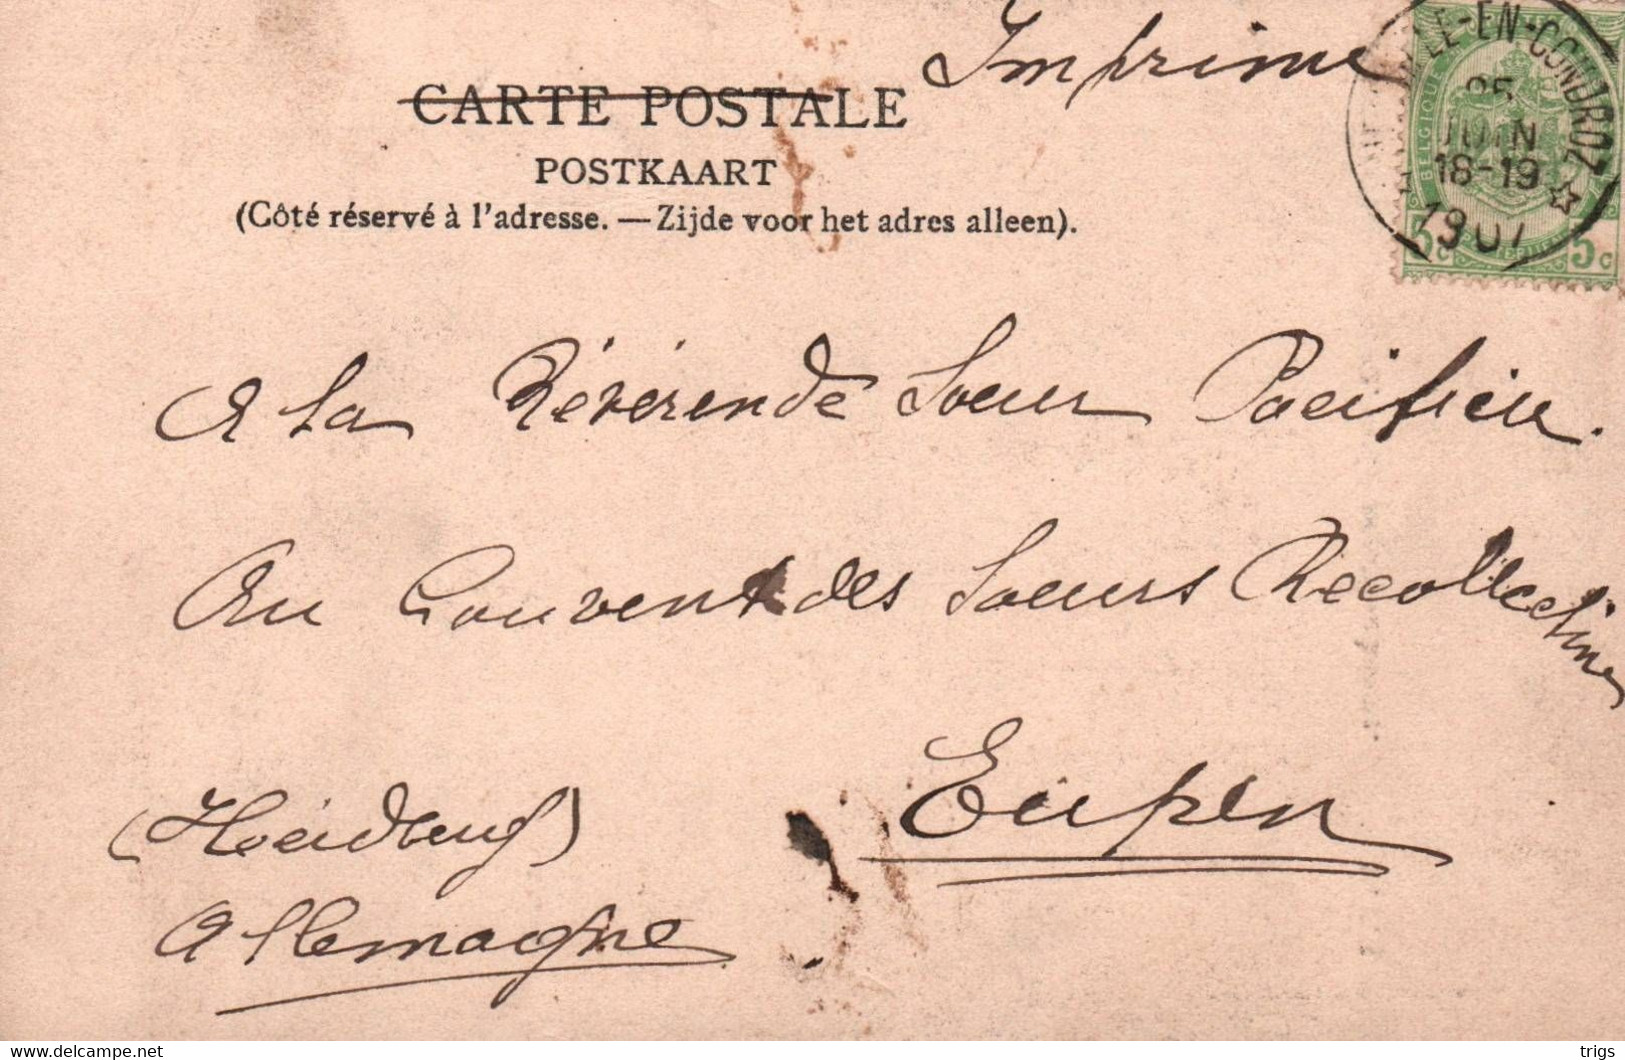 Imprimé
CARTE POSTALE
POSTKAART
(Côté réservé à l'adresse. — Zijde voor het adres alleen).
LE-EN-CONDROZ
25
JUIN
18-19
1907
BELGIQUE
5c 5c
A la Révérende Soeur Pacifien.
Au Couvent des Soeurs Recollectines
Eupen
(Heidberg)
Allemagne
https://www.delcampe.net
trigs